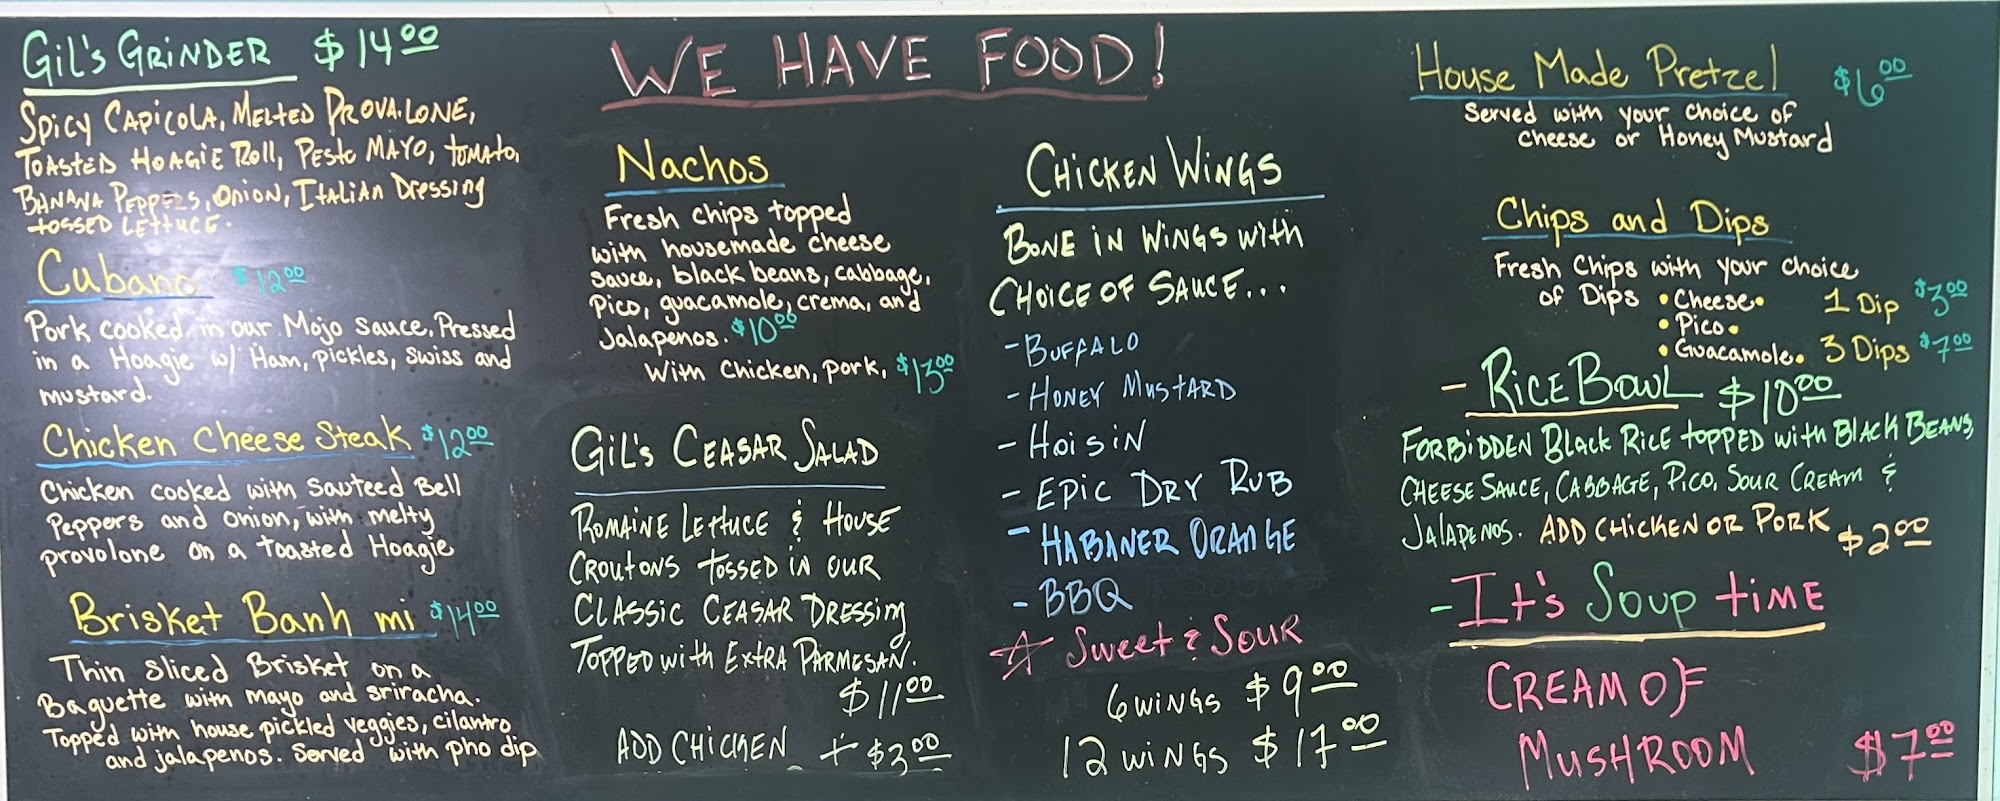 WE HAVE FOOD!
Gil's Grinder $14.00
Spicy Capicola, Melted Provalone,
Toasted Hoagie Roll, Pesto Mayo, Tomato,
Banana Peppers, Onion, Italian Dressing
tossed Lettuce.
Cubano $12.00
Pork cooked in our Mojo Sauce. Pressed
in a Hoagie w/ Ham, pickles, swiss and
mustard.
Chicken Cheese Steak $12.00
Chicken cooked with Sauteed Bell
Peppers and onion, with melty
provolone on a toasted Hoagie
Brisket Banh mi $14.00
Thin Sliced Brisket on a
Baguette with mayo and sriracha.
Topped with house pickled veggies, cilantro,
and jalapenos. Served with pho dip
Nachos
Fresh chips topped
with housemade cheese
Sauce, black beans, cabbage,
Pico, guacamole, crema, and
Jalapenos. $10.00
With Chicken, pork, $13.00
Gil's Ceasar Salad
Romaine Lettuce & House
Croutons tossed in our
Classic Ceasar Dressing
Topped with Extra Parmesan.
$11.00
Add Chicken + $3.00
Chicken Wings
Bone in Wings with
Choice of Sauce...
- Buffalo
- Honey Mustard
- Hoisin
- Epic Dry Rub
- Habaner Orange
- BBQ
☆ Sweet & Sour
6 wings $9.00
12 wings $17.00
House Made Pretzel $6.00
Served with your choice of
cheese or Honey Mustard
Chips and Dips
Fresh Chips with your choice
of Dips • Cheese • 1 Dip $3.00
• Pico •
• Guacamole • 3 Dips $7.00
- Rice Bowl $10.00
Forbidden Black Rice topped with Black Beans,
Cheese Sauce, Cabbage, Pico, Sour Cream &
Jalapenos. Add Chicken or Pork $2.00
- It's Soup time
Cream of
Mushroom $7.00